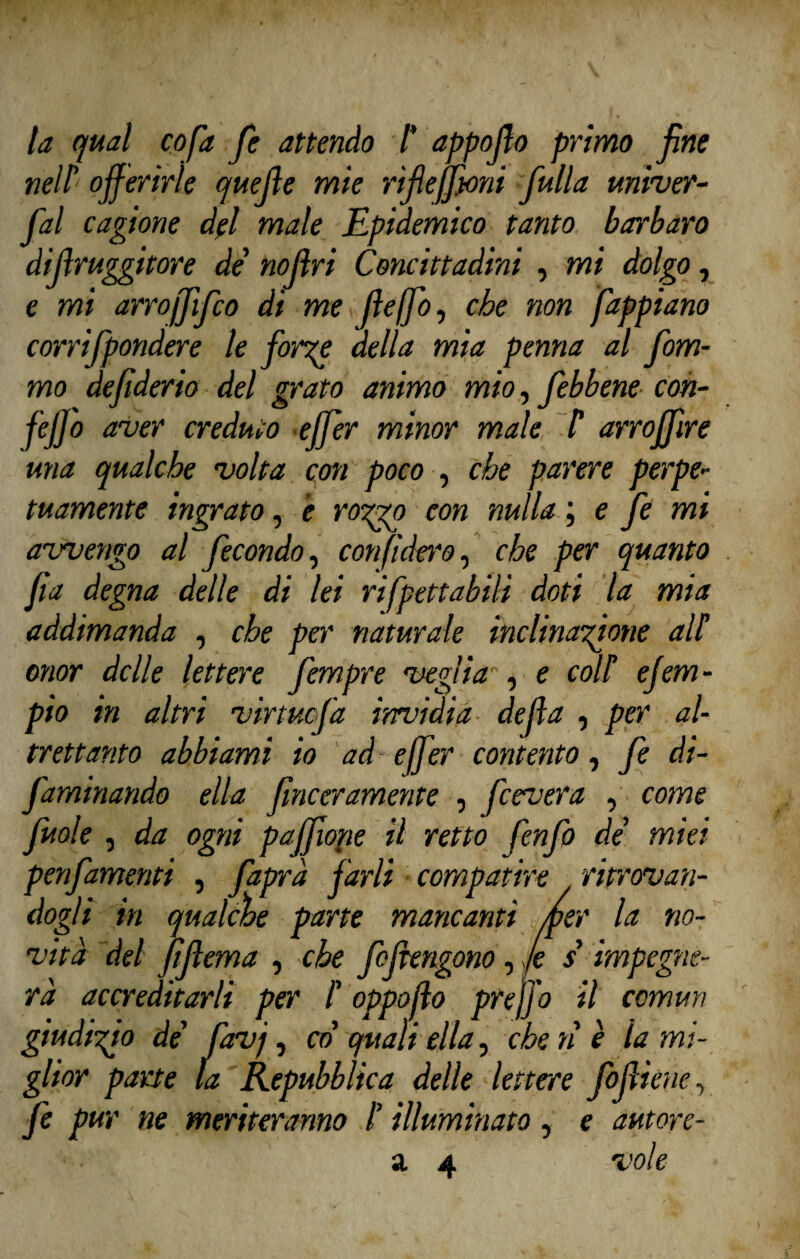 la qual coſa ſe attendo l' appoſto primo fine
nell' offerirle queſte mie rifleſſioni ſulla univer-
ſal cagione del male Epidemico tanto barbaro
diſtruggitore de' noſtri Concittadini , mi dolgo ,
e mi arroſſiſco di me ſteſſo, che non ſappiano
corriſpondere le forze della mia penna al ſom-
mo deſiderio del grato animo mio, ſebbene con-
feſſo aver creduto eſſer minor male l' arroſſire
una qualche volta con poco , che parere perpe-
tuamente ingrato, e rozzo con nulla; e ſe mi
avvengo al ſecondo, conſidero, che per quanto
ſia degna delle di lei riſpettabili doti la mia
addimanda , che per naturale inclinazione all'
onor delle lettere ſempre veglia , e coll' eſem-
pio in altri virtuoſa invidia deſta , per al-
trettanto abbiami io ad eſſer contento, ſe di-
ſaminando ella ſinceramente , ſcevera , come
ſuole , da ogni paſſione il retto ſenſo de' miei
penſamenti , ſaprà farli compatire , ritrovan-
dogli in qualche parte mancanti per la no-
vità del ſiſtema , che ſoſtengono, ſe s' impegne-
rà accreditarli per l' oppoſto preſſo il comun
giudizio de' ſavj, co' quali ella, che n' è la mi-
glior parte la Repubblica delle lettere ſoſtiene,
ſe pur ne meriteranno l' illuminato , e autore-
a 4 vole